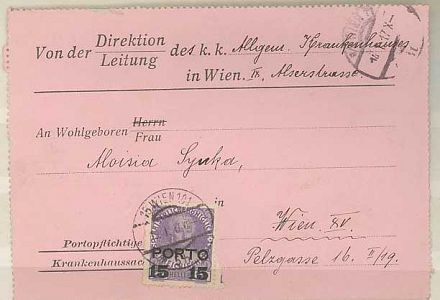 Von der Direktion
Leitung des k. k. Allgem. Krankenhauses
in Wien. IX, Alserstrasse
An Wohlgeboren Herrn
Frau
Aloisia
WIEN 101
in
Wien XV.
Portopflichtige
PORTO
Pelzgasse 16. II/19.
Krankenhaussac
15 15
HELLER